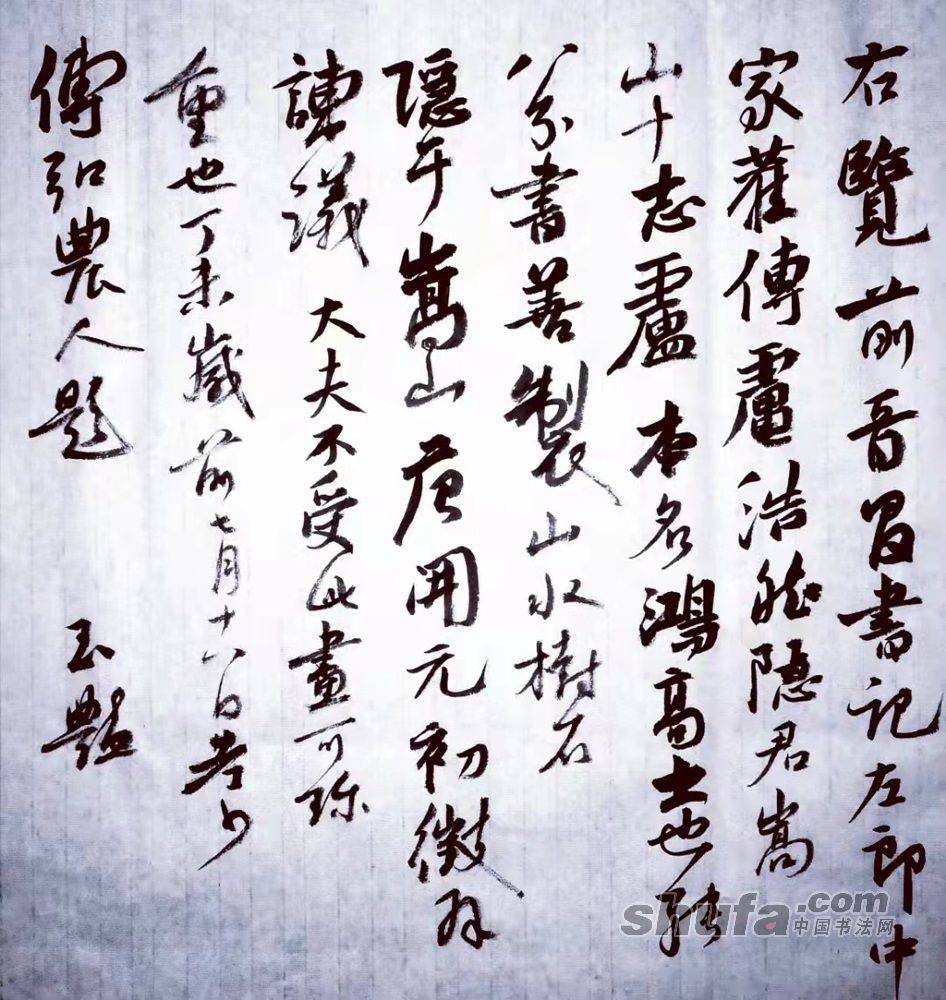 右覽前晉昌書記左郎中
家舊傳盧浩然隱君嵩
山十志盧本名鴻高士也能
八分書善製山水樹石
隱于嵩山唐開元初徵拜
諫議大夫不受此畫可珍
重也丁未歲前七月十八日老少
傅弘農人題 玉艷
shufa.com
中国书法网